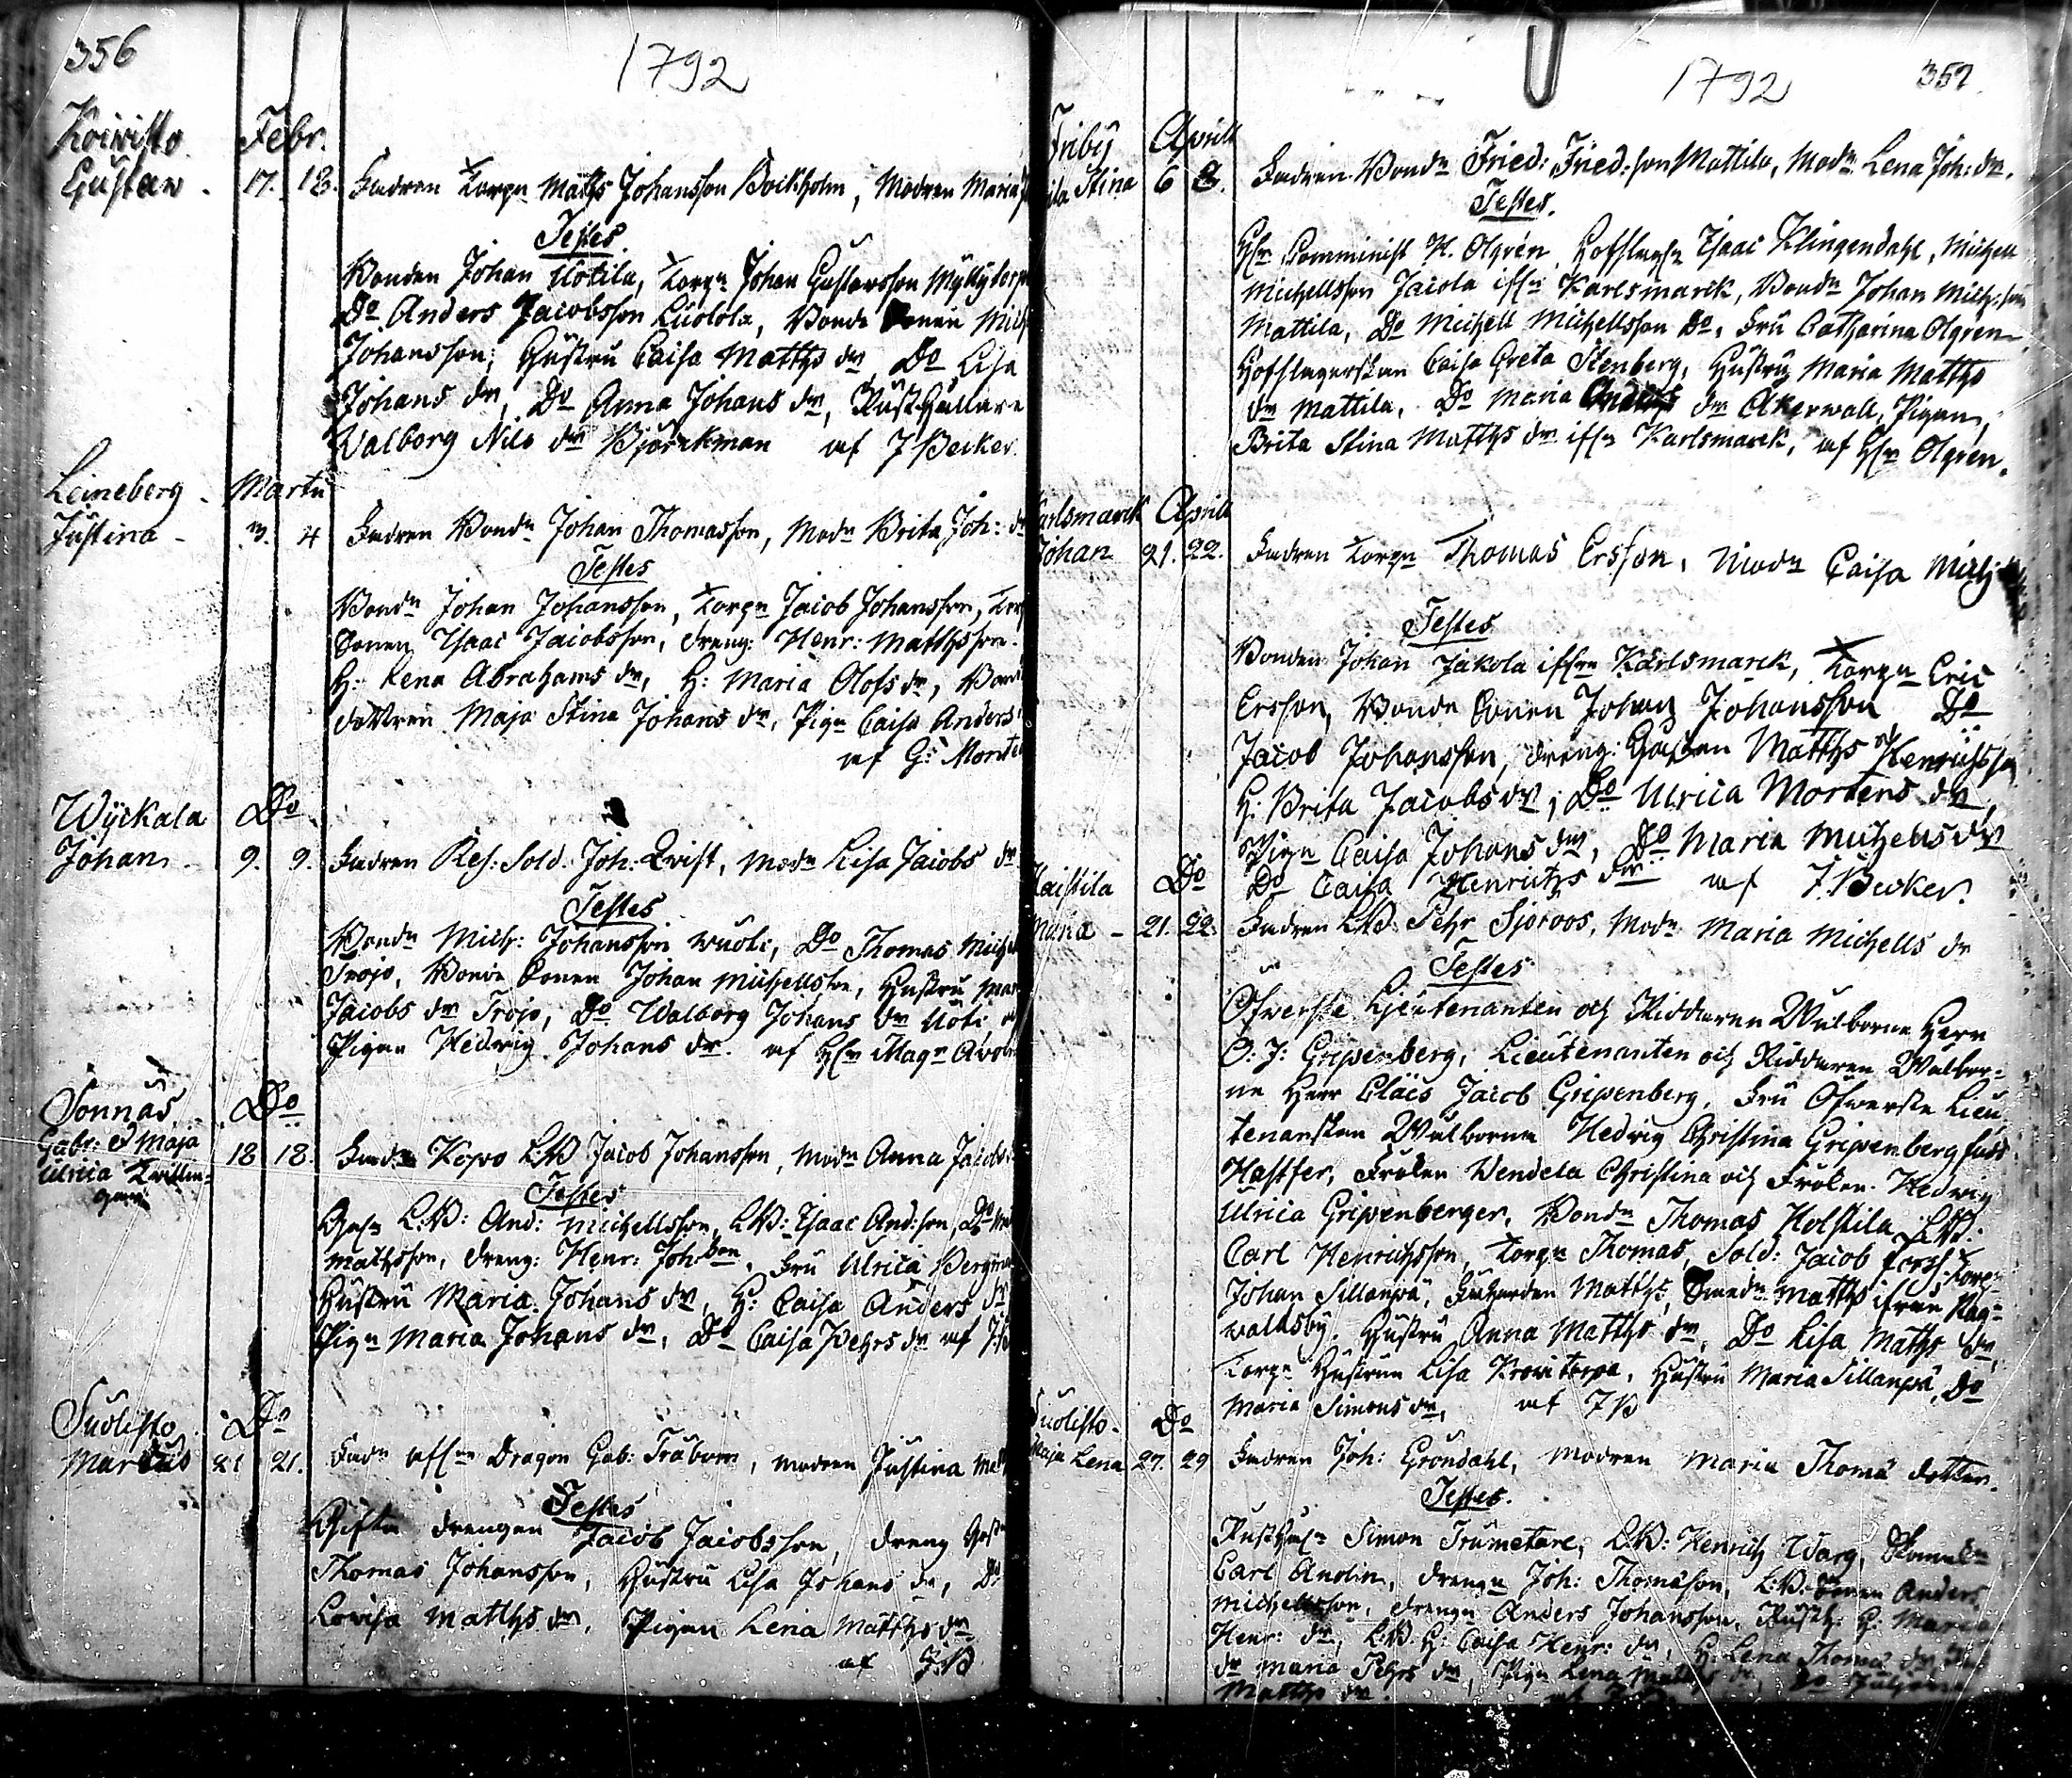 356
1792
Koivisto Febr.
Gustav. 17. 18. Fadren Torpn Matts Johansson Bockholm, Modren Maria
Testes.
Bonden Johan Uotila, Torpn Johan Gustavsson Myllytorp
Do Anders Jacobsson Luolola, Bonde Sonen Mich
Johansson, Hustru Caisa Matths dr, Do Lisa
Johans dr, Do Anna Johans dr, RustHållare
Walborg Nils dr Björckman af J Becker.
Leineberg. Martii
Justina - 3. 4 Fadren Bondn Johan Thomasson, Modn Brita Joh: dr
Testes
Bondn Johan Johansson, Torpn Jacob Johansson,
Sonen Isaac Jacobsson, dreng: Henr: Matthsson.
H: Lena Abrahams dr, H: Maria Olofs dr, Bond
dottren Maja Stina Johans dr, Pign Caisa Anders
af G: Monte
Wyckala Do
Johan. 9. 9. Fadren Res: Sold. Joh: Qvist, Modn Lisa Jacobs dr
Testes
Bondn Mich: Johansson Wuoti, Do Thomas Michel
Trojo, Bonde Sonen Johan Michellsson, Hustru Mar
Jacobs dr Trojo, Do Walborg Johans dr Uoti
Pigan Hedvig Johans dr. af Hr Magr Avel
Sonnäs Do
Gabr: et Maja 18 18. Fadn Kopo L:B Jacob Johansson, Modn Anna Jacobs
Ulrica Tvillin-
garne
Testes
L:B: And: Michellsson, L:B: Isaac And:son, Do
Mathsson, dreng: Henr: Johson, Fru Ulrica Bergman
Hustru Maria Johans dr, H: Caisa Anders dr
Pign Maria Johans dr, Do Caisa Pehrs dr af J:B
Suolisto Do
Marcus 21 21. Fadn Dragon Gab: Träbom, modren Justina Mat
Testes
Gifta drengen Jacob Jacobsson, dreng Gust
Thomas Johansson, Hustru Lisa Johans dr, Do
Lovisa Matths dr, Pigan Lena Matths dr
af J:B
1792 357.
Friby Aprill
Stina 6 8. Fadren Bondn Fried: Fried:son Mattila, Modn Lena Joh: dr.
Testes.
Hr Comminist H. Olgrén, Hofslagn Isaac Klingendahl, Michell
Michellsson Jacola ifrn Karlsmarck, Bondn Johan Mich:son
Mattila, Do Michell Michellsson Do, Fru Catharina Olgren
Hofslagerskan Caisa Greta Stenberg, Hustru Maria Matths
dr Mattila. Do Maria Anders dr Åkerwall, Pigan
Brita Stina Matths dr ifrn Karlsmarck, af Hr Olgren.
Karlsmarck Aprill
Johan 21. 22. Fadren Torpn Thomas Ersson, Modn Caisa Mich
Testes
Bonden Johan Jakola ifrn Karlsmarck, Torpn Eric
Ersson, Bonde Sonen Johan Johansson Do
Jacob Johansson, dreng: Gustav Matths ok Henrichsson
H: Brita Jacobs dr, Do Ulrica Mortens dr,
Pign Caisa Johans dr, Do Maria Michells dr
Do Caisa Henrichs dr af J. Becker.
Haistila Do
Maria - 21. 22. Fadren L:B: Pehr Sjöroos, Modn Maria Michells dr
Testes
Öfverste Lieutenanten och Riddaren Wälborne Herr
O: J: Gripenberg, Lieutenanten och Riddaren Wälbor-
ne Herr Claës Jacob Gripenberg, Fru Öfverste Lieu
tenanskan Wälborna Hedvig Christina Gripenberg född
Hastfer, Frölen Wendela Christina och Frölen Hedvig
Ulrica Gripenberger, Bondn Thomas Holstila, L:B:
Carl Henrichsson, Torpn Thomas, Sold: Jacob Forss, Torpn
Johan Sillanpä, Matths, Smedn Matths ifrån Rag-
valdsby. Hustru Anna Matths dr, Do Lisa Maths dr,
Torpn Hustrun Lisa Krovitorpa, Hustru Maria Sillanpä, Do
Maria Simons dr, af J B
Suolisto. Do
Maja Lena 27. 29 Fadren Joh: Gröndahl, Modren Maria Thomä dotter.
Testes.
Rusthn Simon Trumetare, L:B: Henrich Warg,
Carl Anolin, drengn Joh: Thomäson, L:B: Sonen Anders
Michellsson, drengn Anders Johansson, Rusth: H: Maria
Henr: dr, L:B. H: Caisa Henr: dr, H: Lena Thomä dr
dr Maria Pehrs dr, Pign Lena Matths dr, Do
Matths dr.